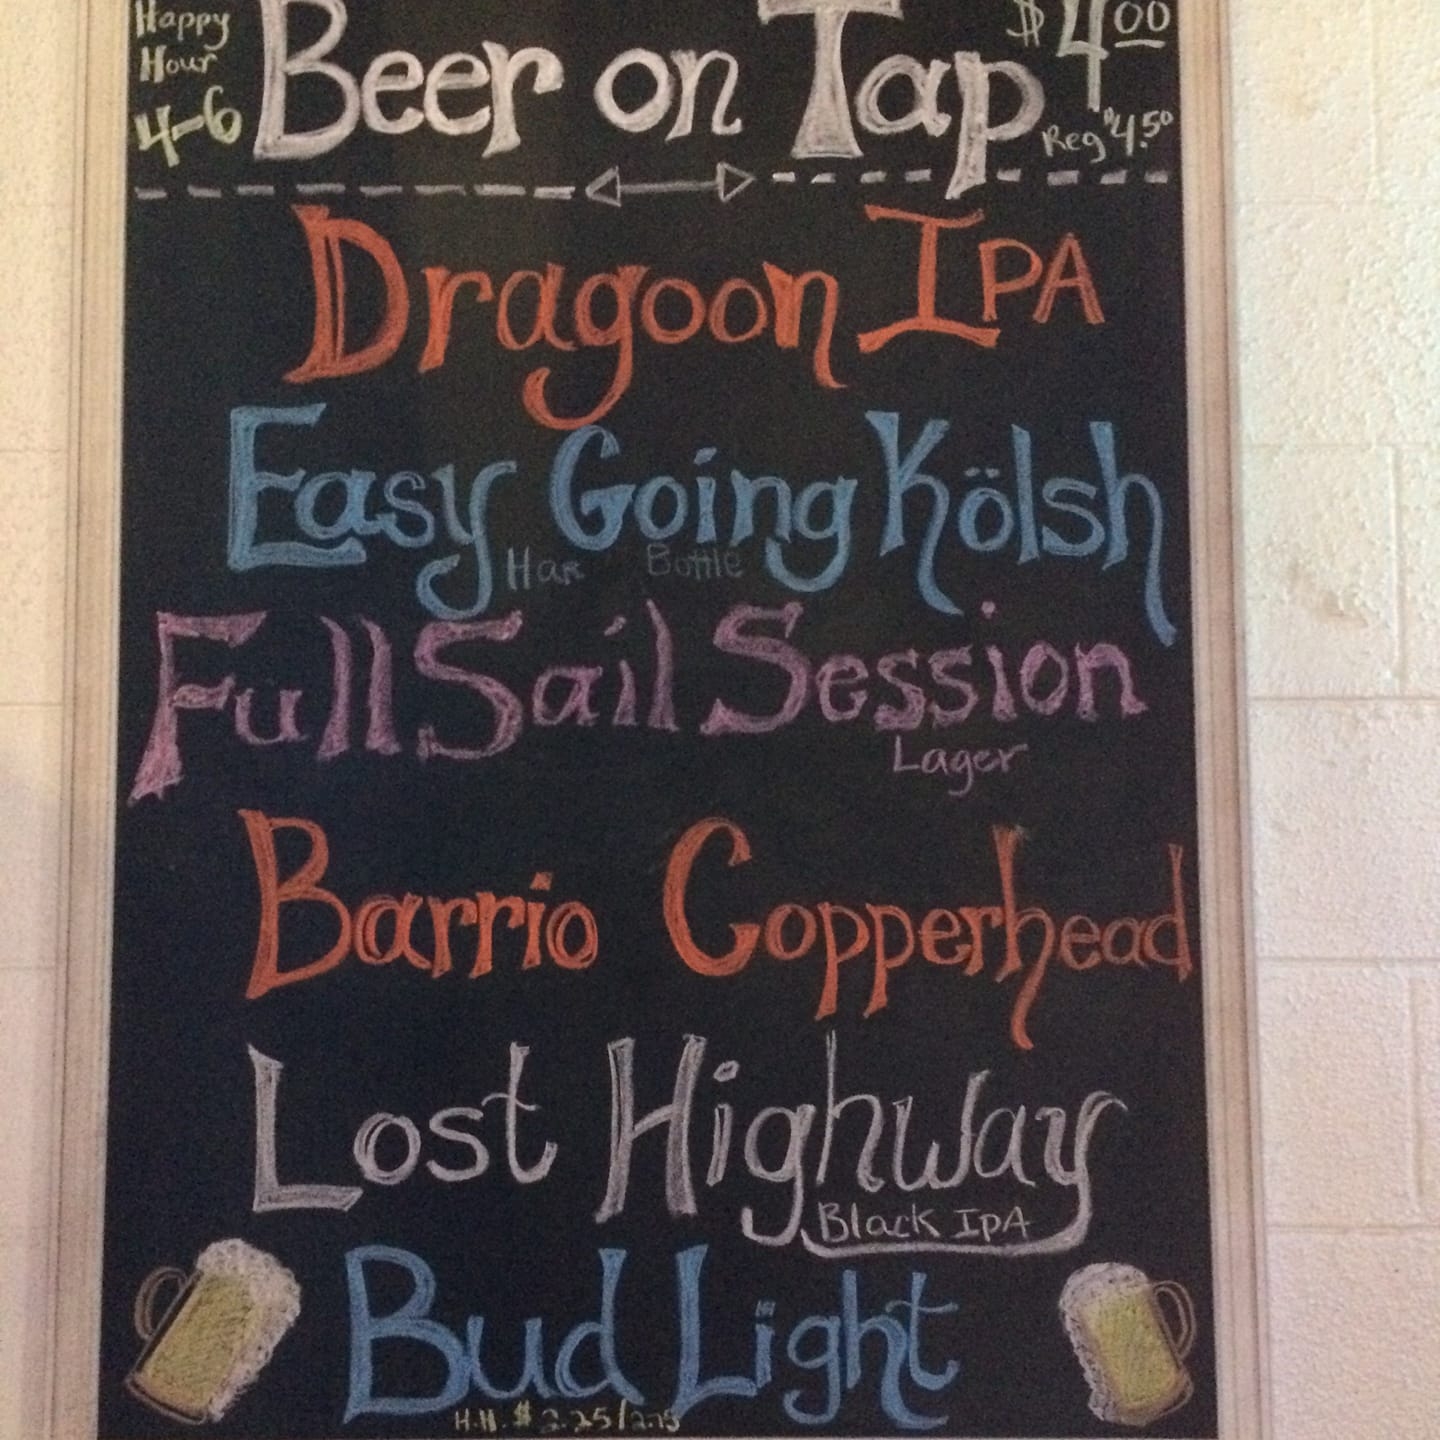 Happy
Hour
4-6
Beer on Tap
$4.00
Reg $4.50
Dragoon IPA
Easy Going Kölsh
Bottle
Full Sail Session
Lager
Barrio Copperhead
Lost Highway
Black IPA
Bud Light
H.H. $2.25/2.75